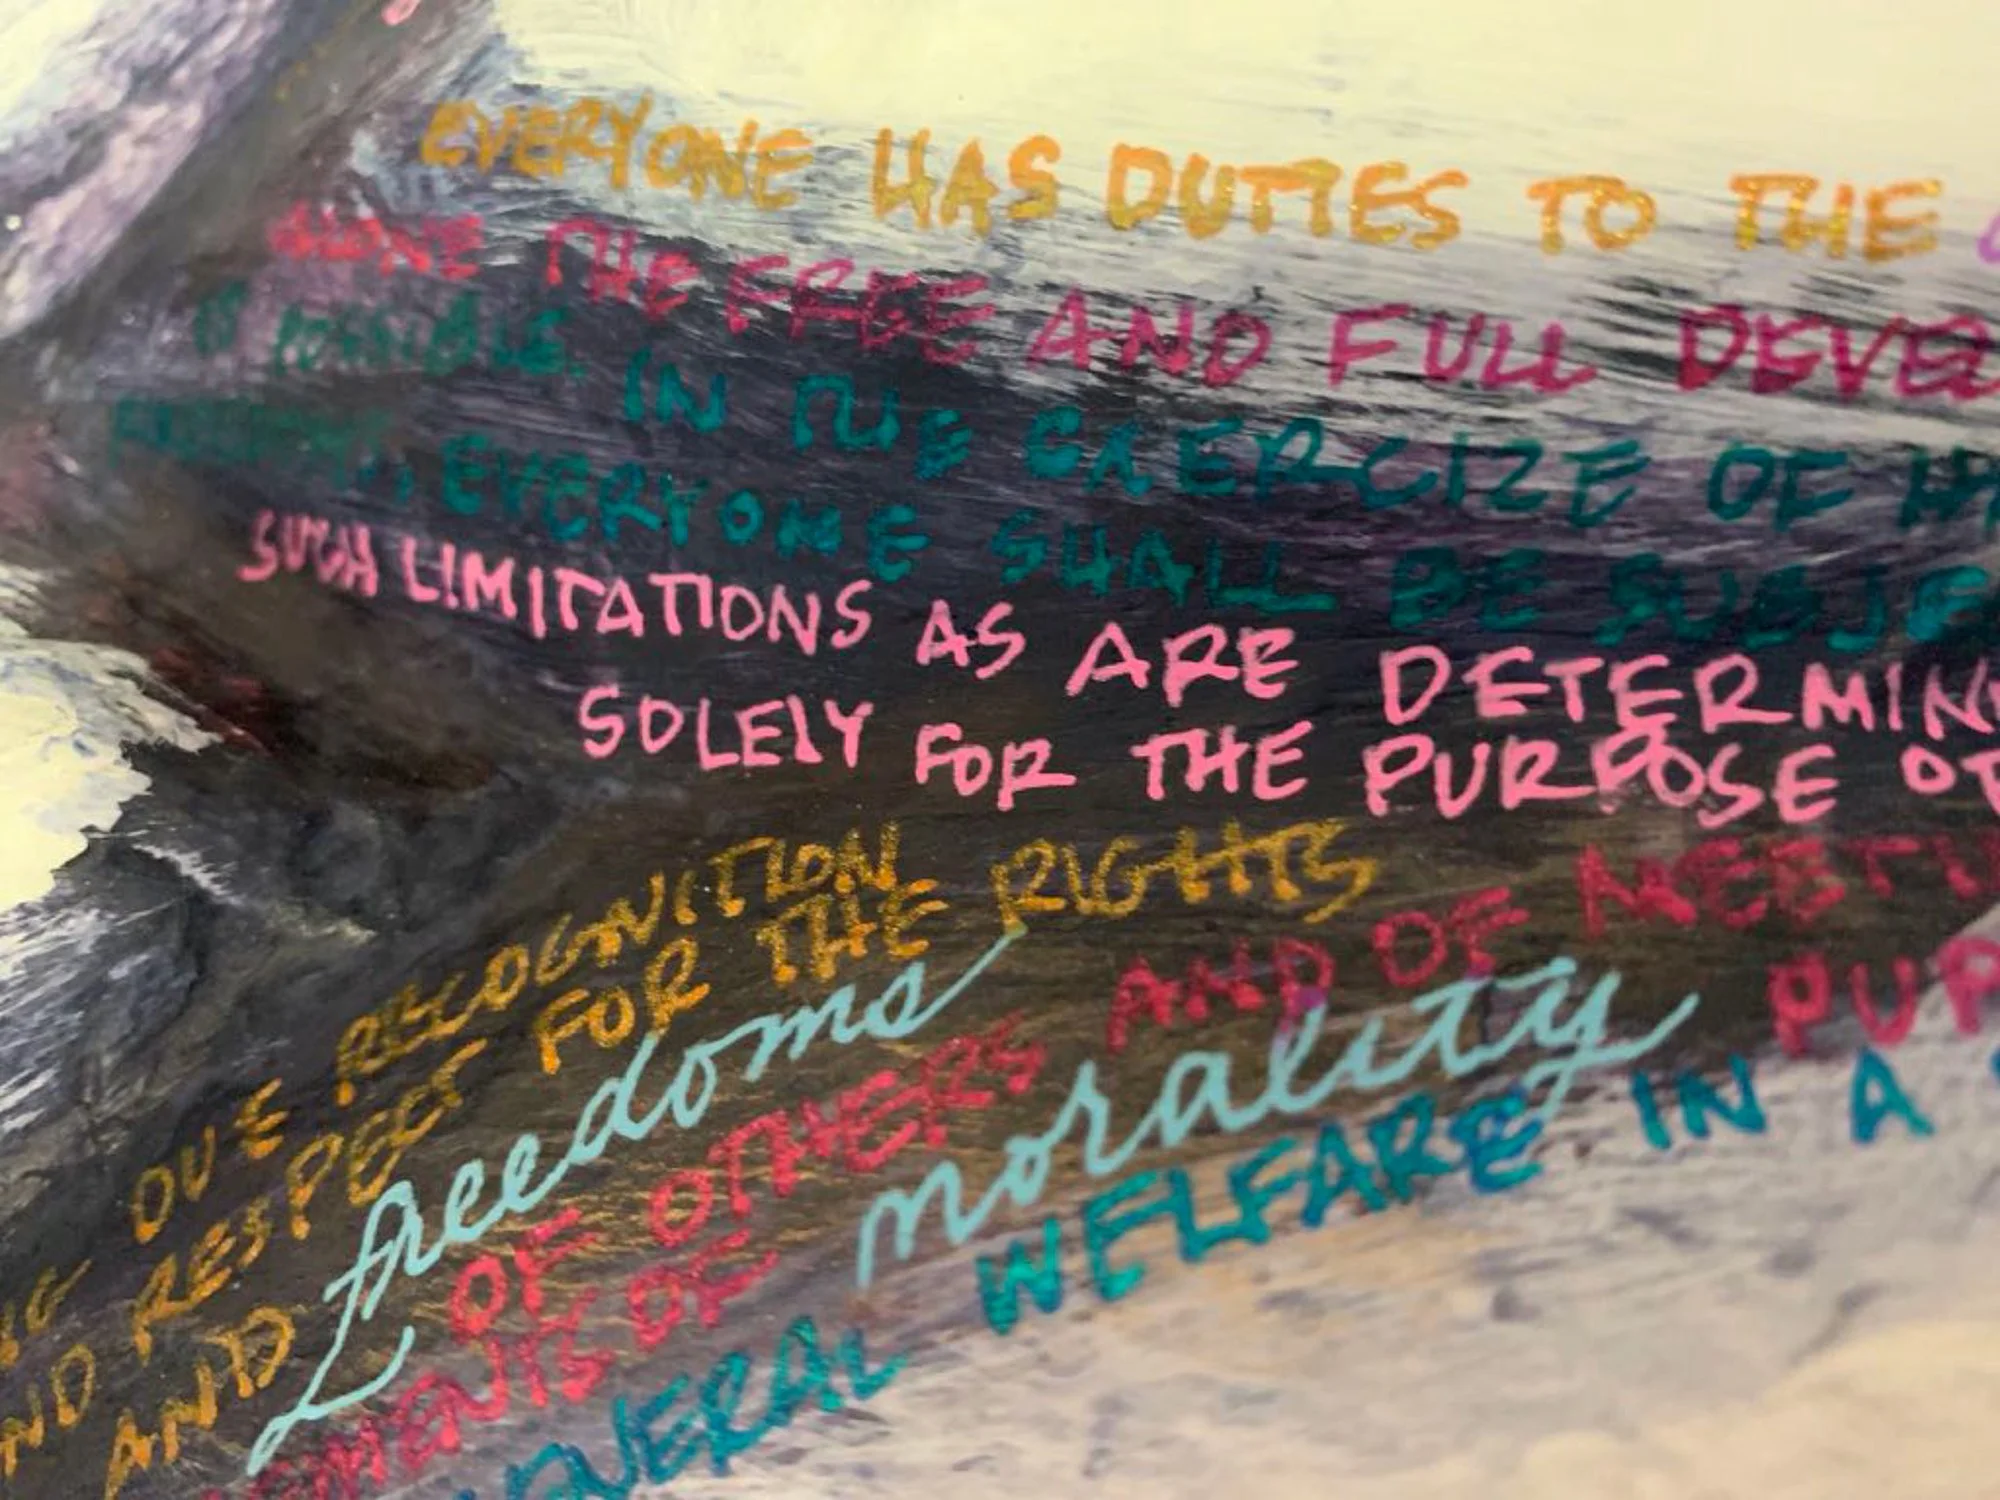 EVERYONE HAS DUTIES TO THE
ALONE THE FREE AND FULL DEVEL
IS POSSIBLE. IN THE EXERCIZE OF HI
EVERYONE SHALL BE SUBJE
SUCH LIMITATIONS AS ARE DETERMIN
SOLELY FOR THE PURPOSE OF
DUE RECOGNITION
AND RESPECT FOR THE RIGHTS
AND freedoms
OF OTHERS AND OF MEETI
OF morality PUP
WELFARE IN A